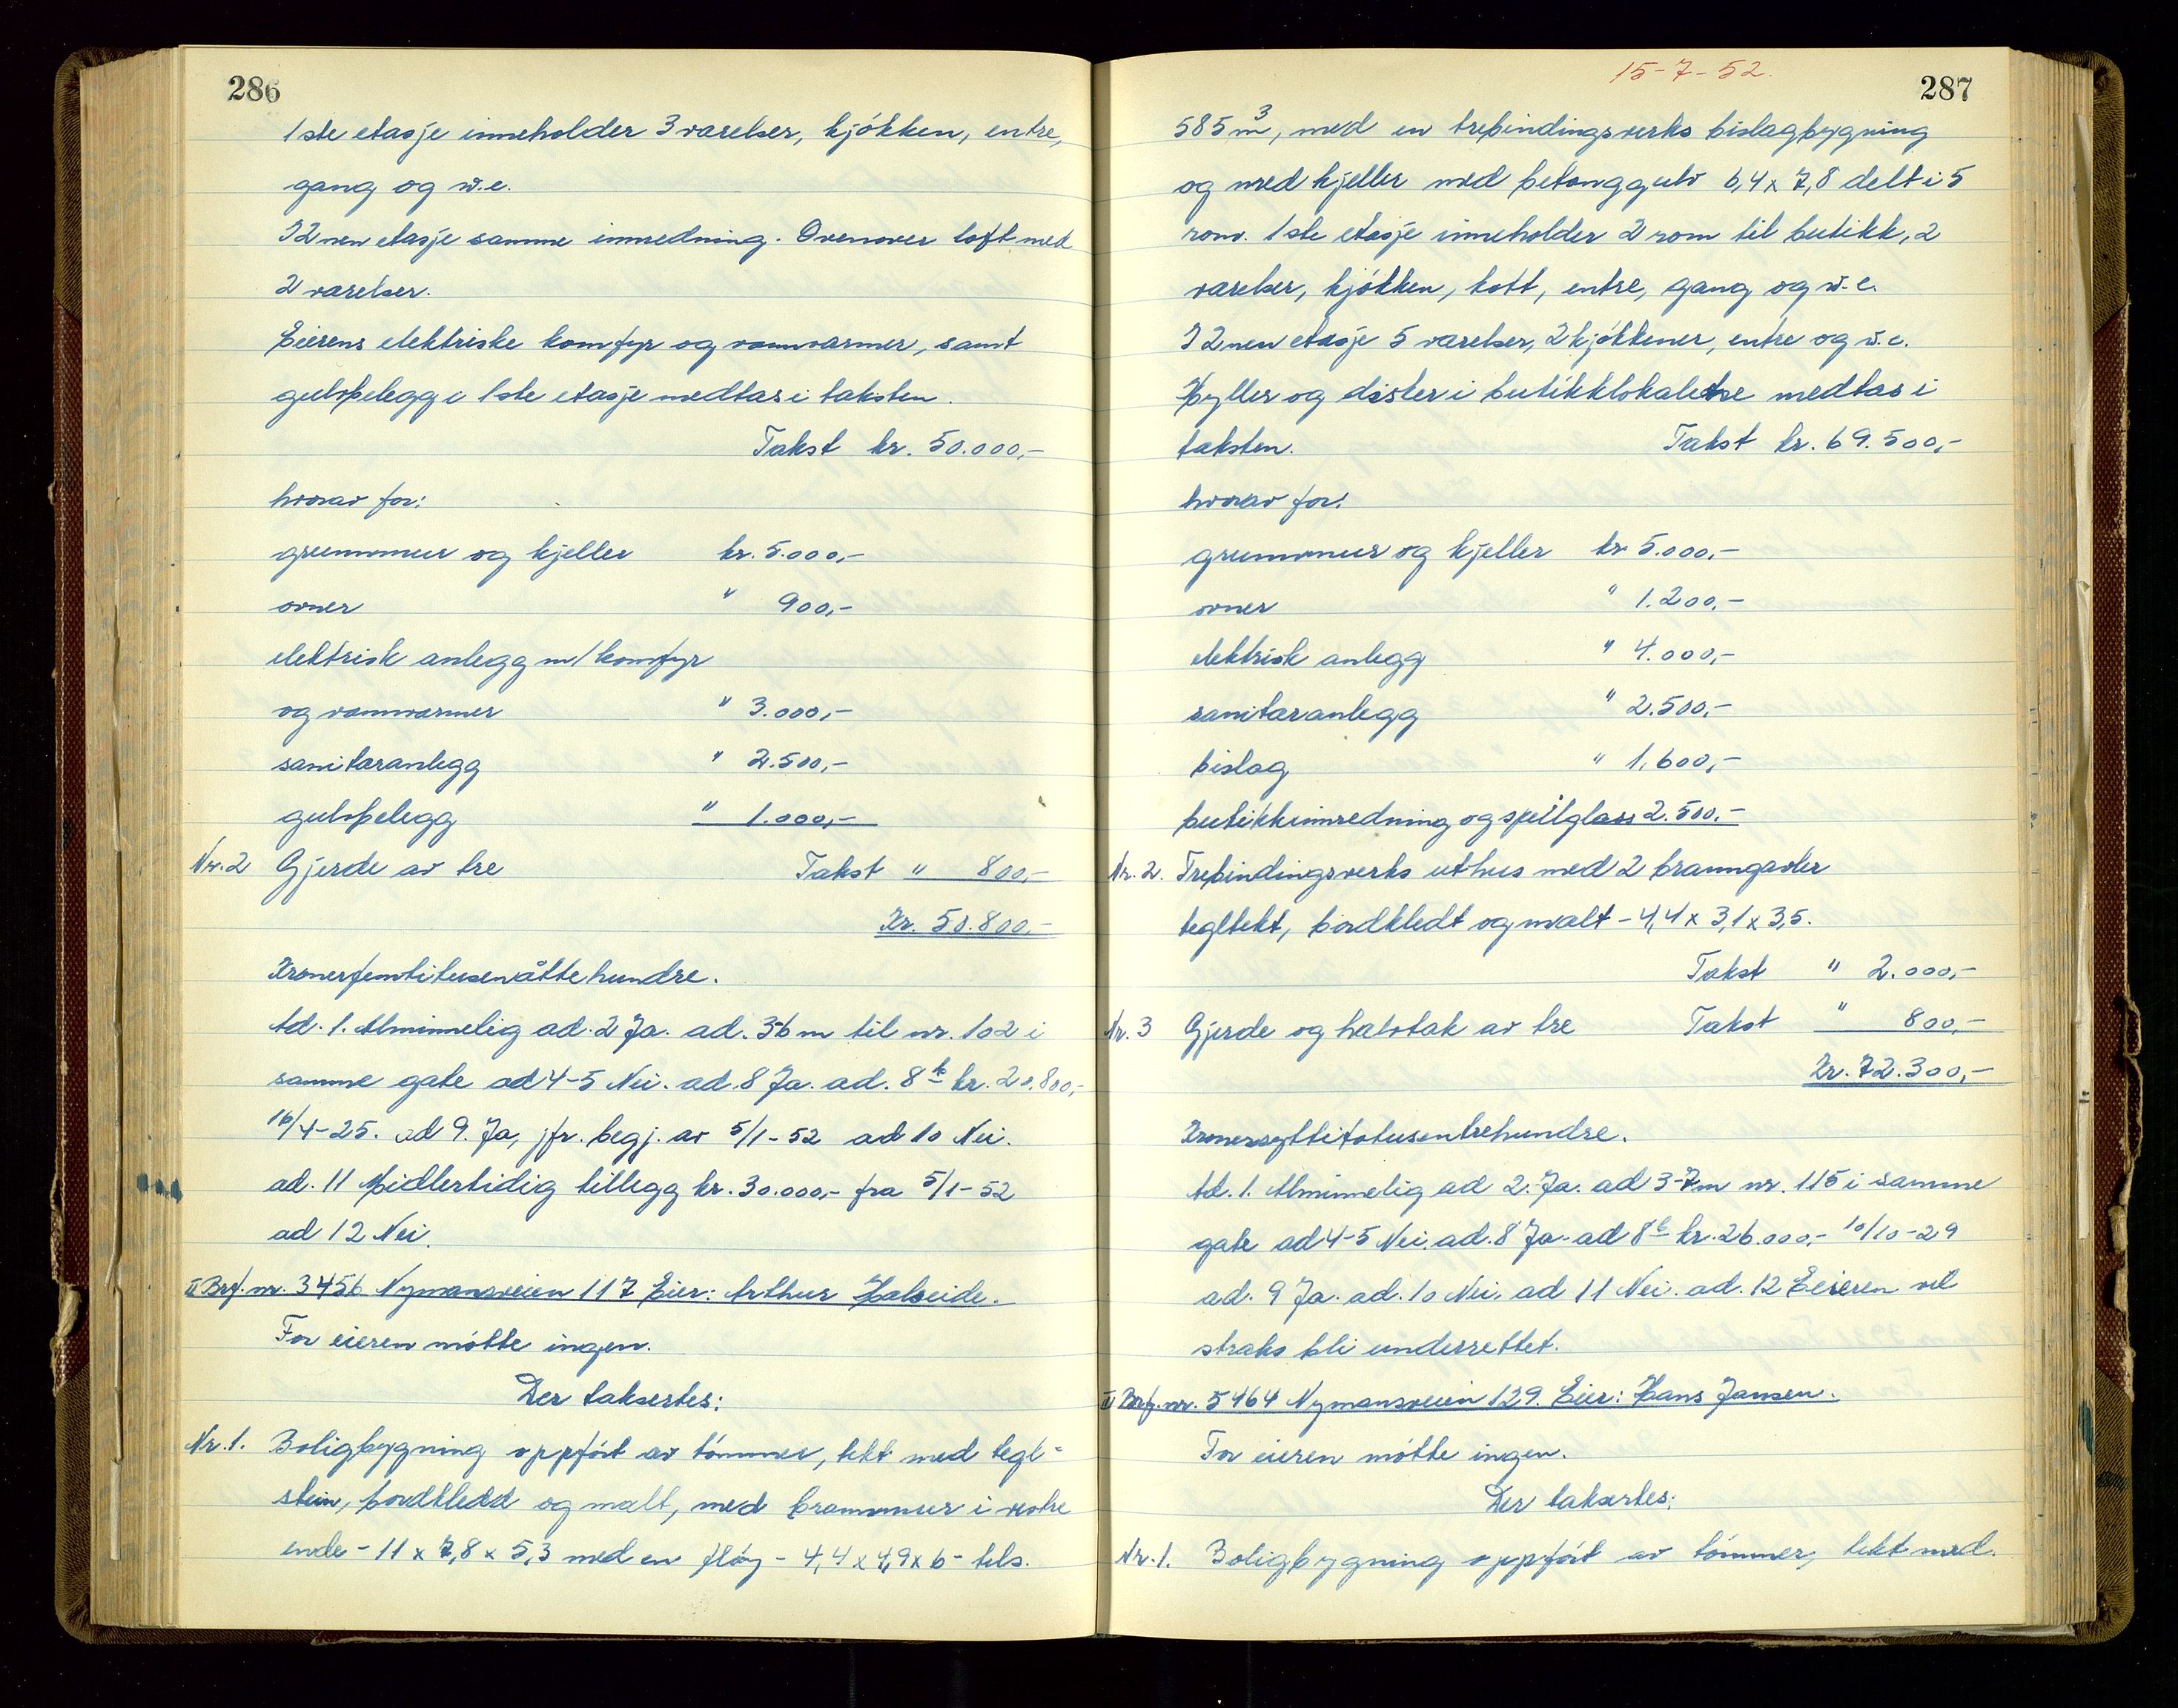 286
1ste etasje inneholder 3 værelser, kjøkken, entre,
gang og w.c.
I 2nen etasje samme innredning. Ovenover loft med
2 værelser.
Eierens elektriske komfyr og vannvarmer, samt
gulvbelegg i 1ste etasje medtas i taksten.
Takst kr. 50.000,-
hvorav for:
grunnmur og kjeller kr. 5.000,-
ovner " 900,-
elektrisk anlegg m/komfyr
og vannvarmer " 3.000,-
sanitæranlegg " 2.500,-
gulvbelegg " 1.000,-
Nr. 2 Gjerde av tre Takst " 800,-
Kr. 50.800,-
Kronerfemtitusenåttehundre.
Ad. 1. Alminnelig ad. 2 Ja. ad. 3 6 m til nr. 102 i
samme gate ad 4-5 Nei. ad. 8 Ja. ad. 8 b kr. 20.800,-
16/4-25. ad 9. Ja, jfr. begj. av 5/1-52 ad 10 Nei.
ad. 11 Midlertidig tillegg kr. 30.000,- fra 5/1-52
ad 12 Nei.
II Brf. nr. 3456 Nymansveien 117 Eier: Arthur Halseide.
For eieren møtte ingen.
Der taksertes:
Nr. 1. Boligbygning oppført av tømmer, tekt med tegl-
stein, bordkledd og malt, med brannmur i vestre
ende - 11 x 7,8 x 5,3 med en fløy - 4,4 x 4,9 x 6 - tils.
15-7-52.
287
585 m3, med en trebindingsverks bislagbygning
og med kjeller med betonggulv 6,4 x 7,8 delt i 5
rom. 1ste etasje inneholder 2 rom til butikk, 2
værelser, kjøkken, kott, entre, gang og w.c.
I 2nen etasje 5 værelser, 2 kjøkkener, entre og w.c.
Hyller og disker i butikklokalene medtas i
taksten. Takst kr. 69.500,-
hvorav for:
grunnmur og kjeller kr 5.000,-
ovner " 1.200,-
elektrisk anlegg " 4.000,-
sanitæranlegg " 2.500,-
bislag " 1.600,-
butikkinnredning og speilglass 2.500,-
Nr. 2. Trebindingsverks uthus med 2 branngavler
tegltekt, bordkledt og malt - 4,4 x 3,1 x 3,5.
Takst " 2.000,-
Nr. 3 Gjerde og halvtak av tre Takst " 800,-
Kr. 72.300,-
Kronersyttitotusentrehundre.
Ad. 1. Alminnelig ad 2. Ja. ad 3-7m nr. 115 i samme
gate ad 4-5 Nei. ad. 8 Ja. ad 8 b kr. 26.000,- 10/10-29
ad. 9 Ja. ad. 10 Nei. ad 11 Nei. ad. 12 Eieren vil
straks bli underrettet.
II Brf. nr. 5464 Nymansveien 129. Eier: Hans Jansen.
For eieren møtte ingen.
Der taksertes:
Nr. 1. Boligbygning oppført av tømmer, tekt med